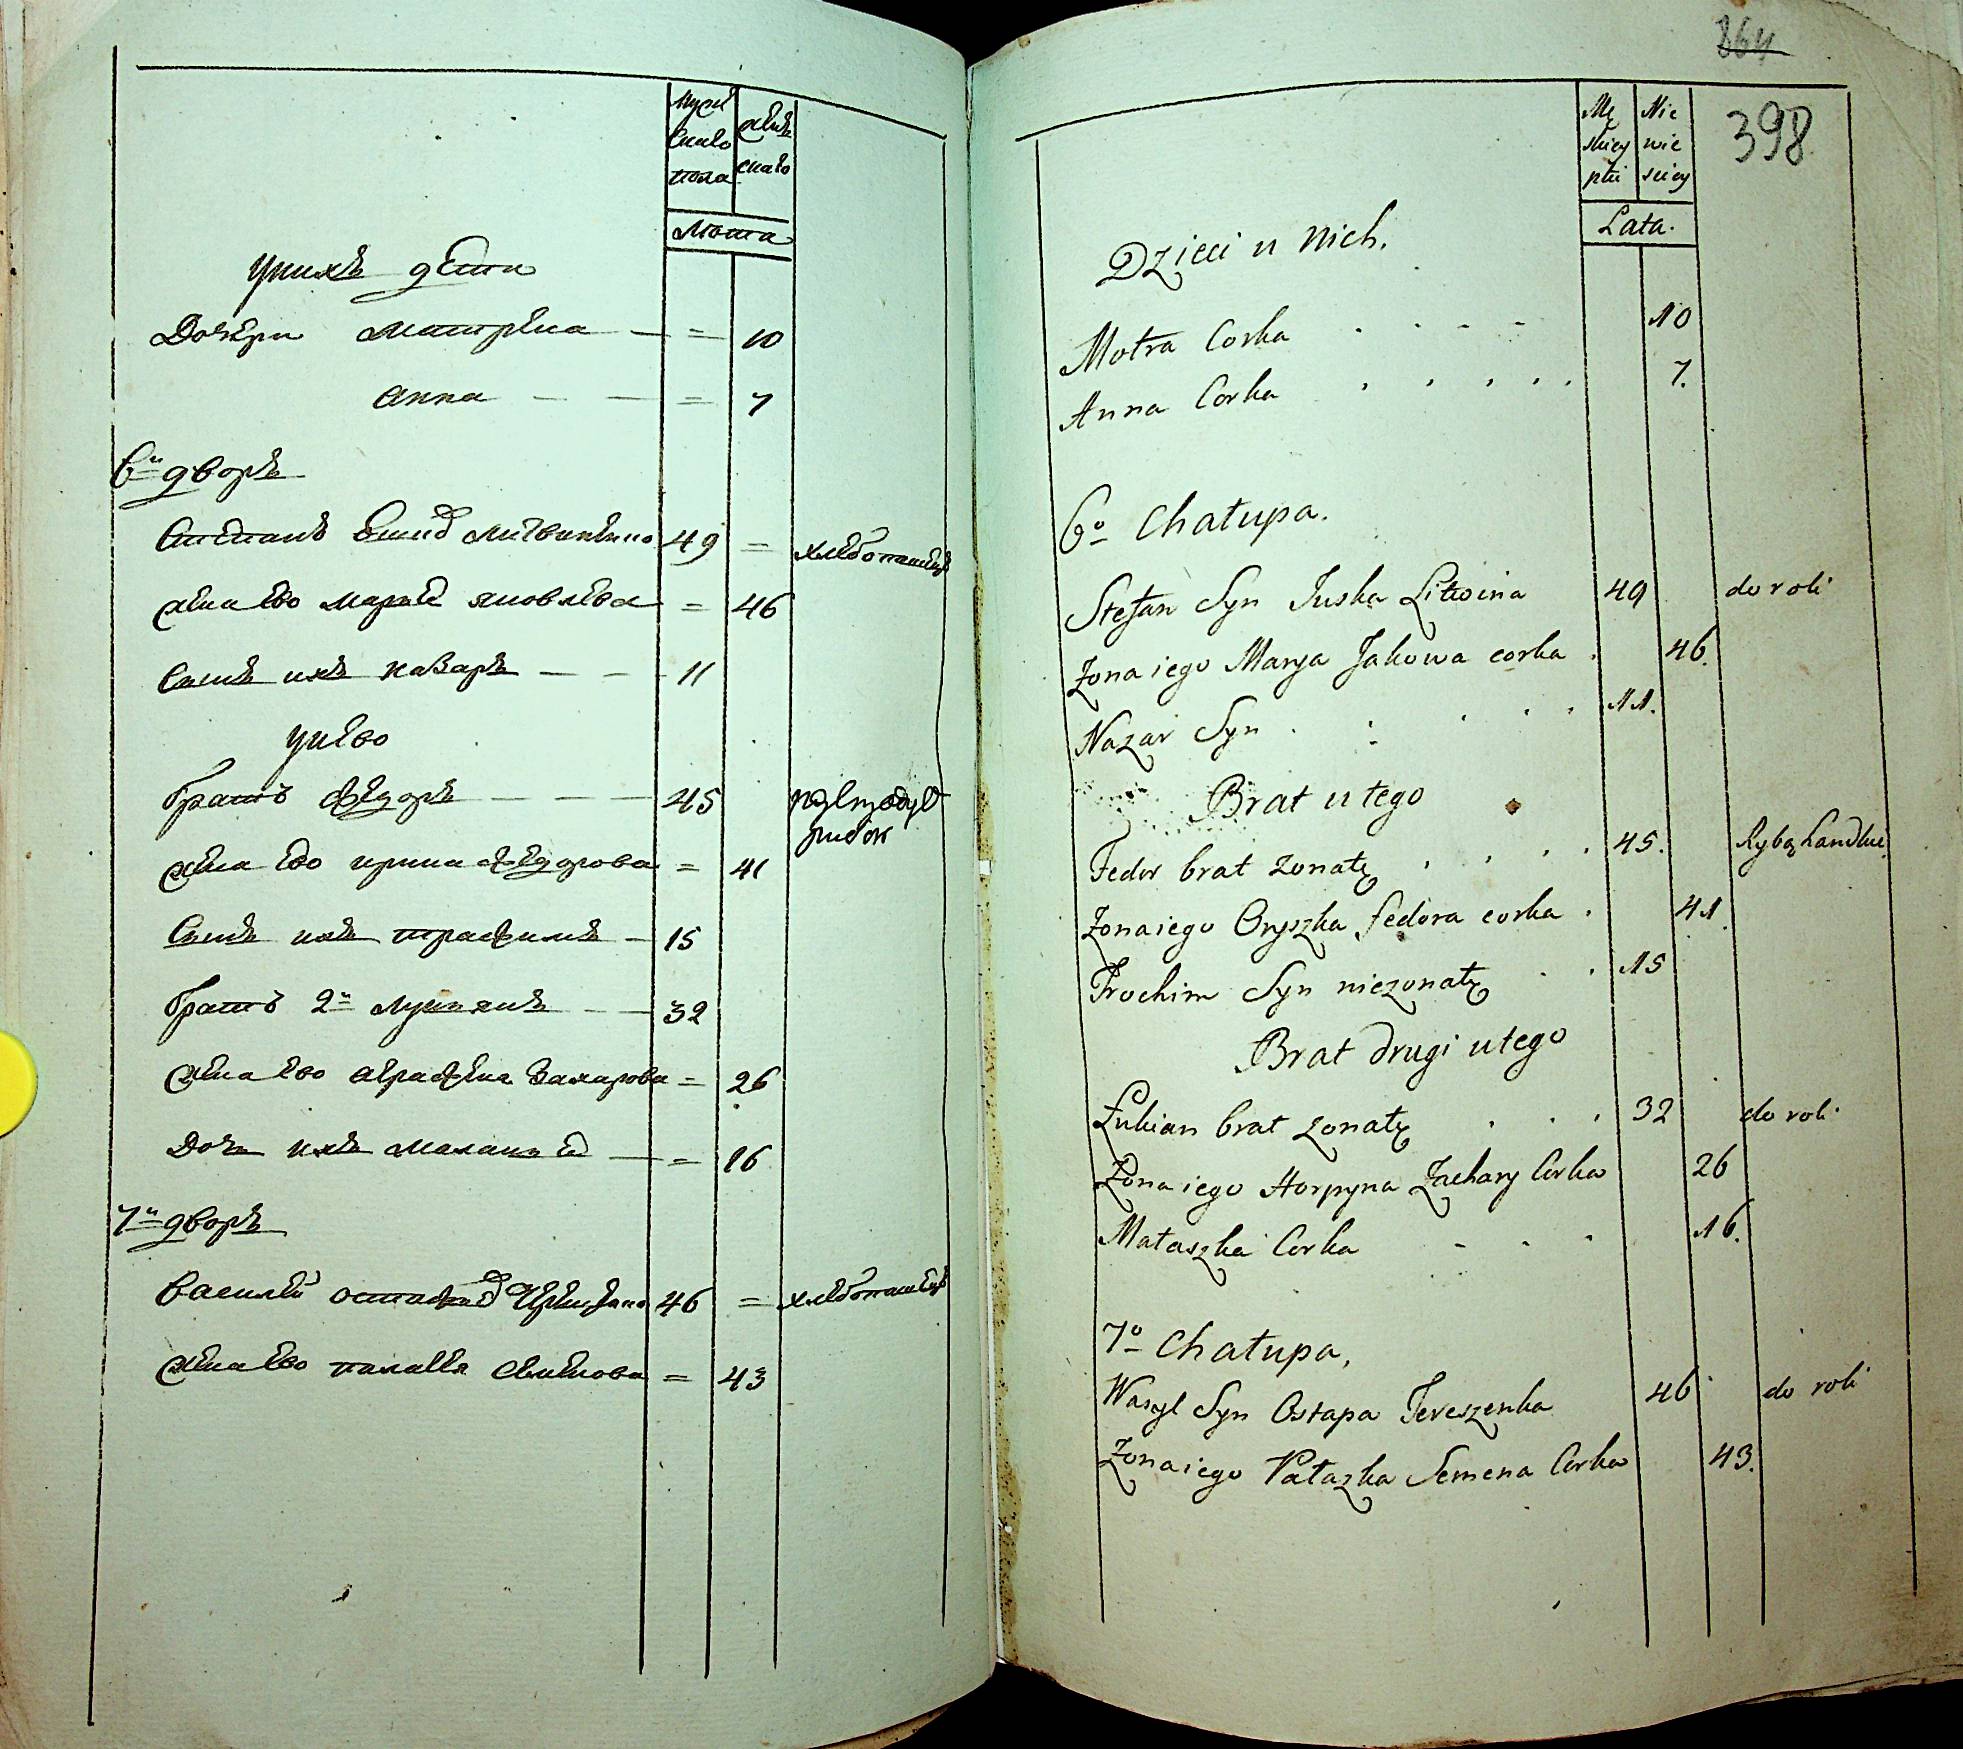 Муже
скаго
пола
женъ
скаго
Лѣта
У нихъ дети
Дочери Матрена — = 10
Анна — — = 7
6й дворъ
Степанъ 49 = хлебопашецъ
жена ево Марья Яковлева = 46
Сынъ ихъ Назаръ — — — 11
У нево
братъ Федоръ — — — 45
рибою
жена ево Ирина Федорова = 41
Сынъ ихъ Трафимъ — 15
братъ 2й Лукиянъ — — 32
жена ево Аграфена Захарова = 26
Дочь ихъ Маланья — = 16
7й дворъ
Василей 46 = хлебопашецъ
жена ево Палагея Семенова = 43
264
398
Mę
skiey
płci
Nie
wie
sciey
Lata.
Dzieci u Nich.
Motra Corka 10
Anna Corka 7.
6o Chałupa.
Stefan Syn Juska Litwina 49 do roli
Żona iego Marya Jakowa corka 46.
Nazar Syn 11.
Brat u tego
Fedor brat żonaty 45. Rybą handluie
Żona iego Oryszka fedora corka 41.
Trochim Syn nieżonaty 15
Brat drugi u tego
Łukian brat żonaty 32 do roli
Żona iego Horpyna Zachary Corka 26
Małaszka Corka 16.
7o Chałupa,
Wasyl Syn Ostapa Tereszenka 46 do roli
Żona iego Pałazka Semena Corka 43.